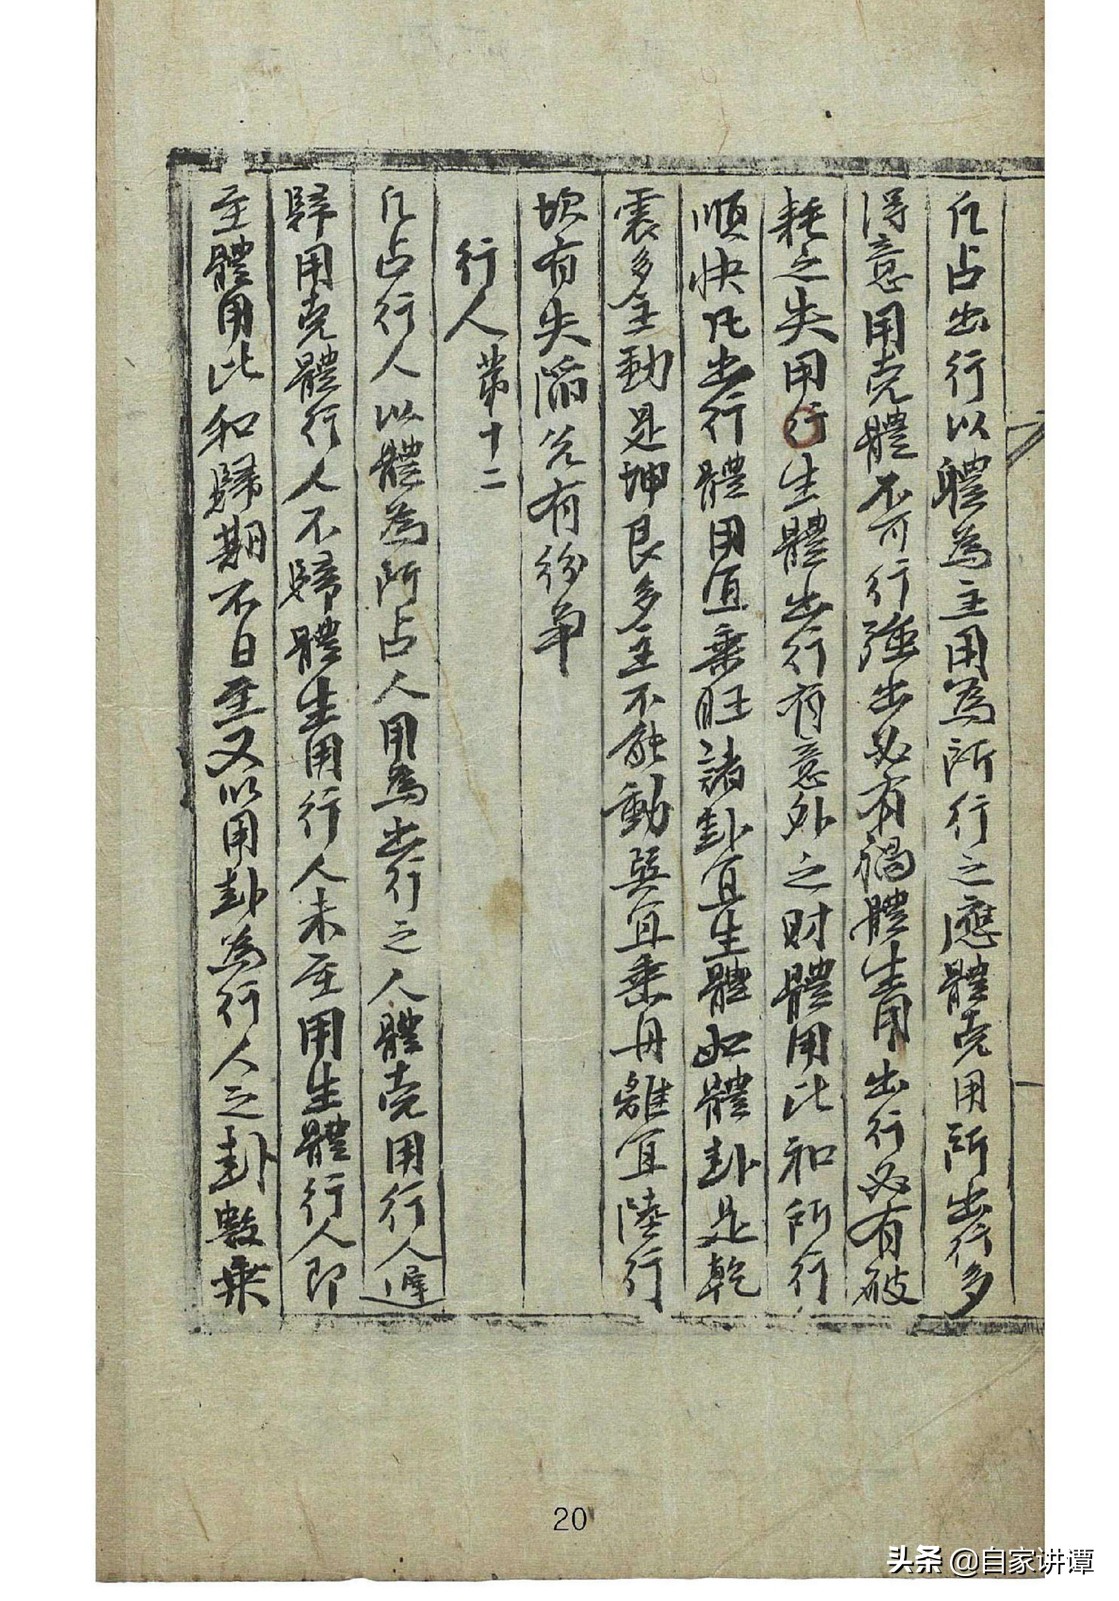 凡占出行以體為主用為所行之應體克用所出行多
得意用克體不可行強出必有禍體生用出行必有破
耗之失用行生體出行有意外之財體用比和所行
順快凡出行體用宜乘旺諸卦宜生體如體卦是乾
震多主動是坤艮多主不能動巽宜乘舟離宜陸行
坎有失陷兌有紛争
行人第十二
凡占行人以體為所占人用為出行之人體克用行人遲
歸用克體行人不歸體生用行人未至用生體行人即
至體用比和歸期不日至又以用卦為行人之卦數乘
20
头条 @自家讲谭